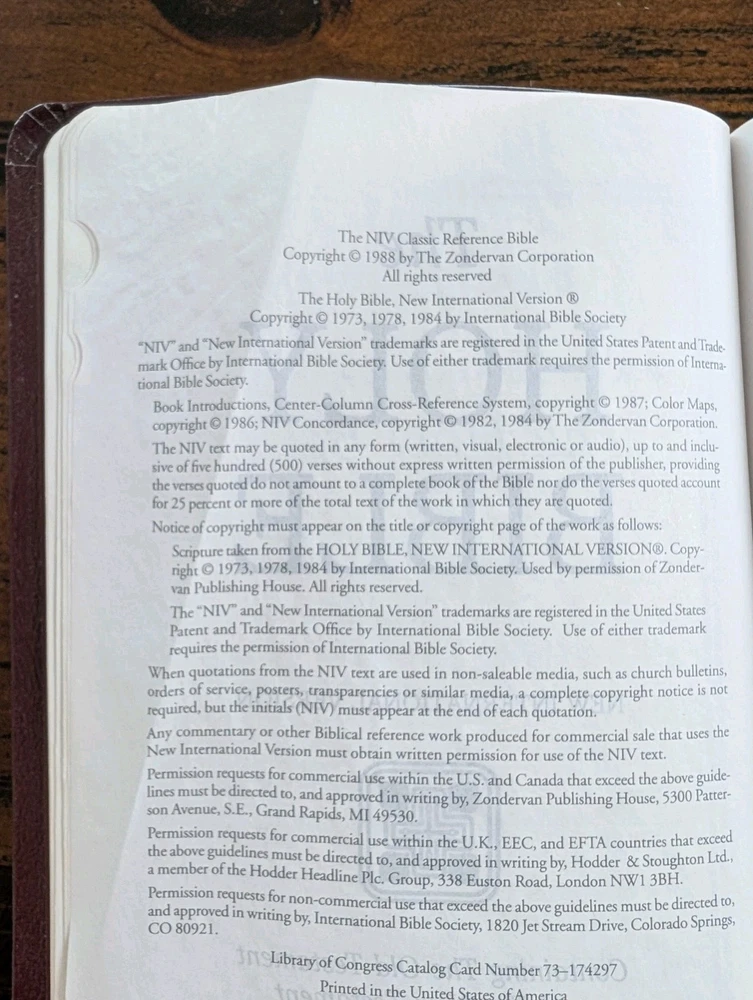 The NIV Classic Reference Bible
Copyright © 1988 by The Zondervan Corporation
All rights reserved
The Holy Bible, New International Version ®
Copyright © 1973, 1978, 1984 by International Bible Society
“NIV” and “New International Version” trademarks are registered in the United States Patent and Trade-
mark Office by International Bible Society. Use of either trademark requires the permission of Interna-
tional Bible Society.
Book Introductions, Center-Column Cross-Reference System, copyright © 1987; Color Maps,
copyright © 1986; NIV Concordance, copyright © 1982, 1984 by The Zondervan Corporation.
The NIV text may be quoted in any form (written, visual, electronic or audio), up to and inclu-
sive of five hundred (500) verses without express written permission of the publisher, providing
the verses quoted do not amount to a complete book of the Bible nor do the verses quoted account
for 25 percent or more of the total text of the work in which they are quoted.
Notice of copyright must appear on the title or copyright page of the work as follows:
Scripture taken from the HOLY BIBLE, NEW INTERNATIONAL VERSION®. Copy-
right © 1973, 1978, 1984 by International Bible Society. Used by permission of Zonder-
van Publishing House. All rights reserved.
The “NIV” and “New International Version” trademarks are registered in the United States
Patent and Trademark Office by International Bible Society. Use of either trademark
requires the permission of International Bible Society.
When quotations from the NIV text are used in non-saleable media, such as church bulletins,
orders of service, posters, transparencies or similar media, a complete copyright notice is not
required, but the initials (NIV) must appear at the end of each quotation.
Any commentary or other Biblical reference work produced for commercial sale that uses the
New International Version must obtain written permission for use of the NIV text.
Permission requests for commercial use within the U.S. and Canada that exceed the above guide-
lines must be directed to, and approved in writing by, Zondervan Publishing House, 5300 Patter-
son Avenue, S.E., Grand Rapids, MI 49530.
Permission requests for commercial use within the U.K., EEC, and EFTA countries that exceed
the above guidelines must be directed to, and approved in writing by, Hodder & Stoughton Ltd.,
a member of the Hodder Headline Plc. Group, 338 Euston Road, London NW1 3BH.
Permission requests for non-commercial use that exceed the above guidelines must be directed to,
and approved in writing by, International Bible Society, 1820 Jet Stream Drive, Colorado Springs,
CO 80921.
Library of Congress Catalog Card Number 73–174297
Printed in the United States of America